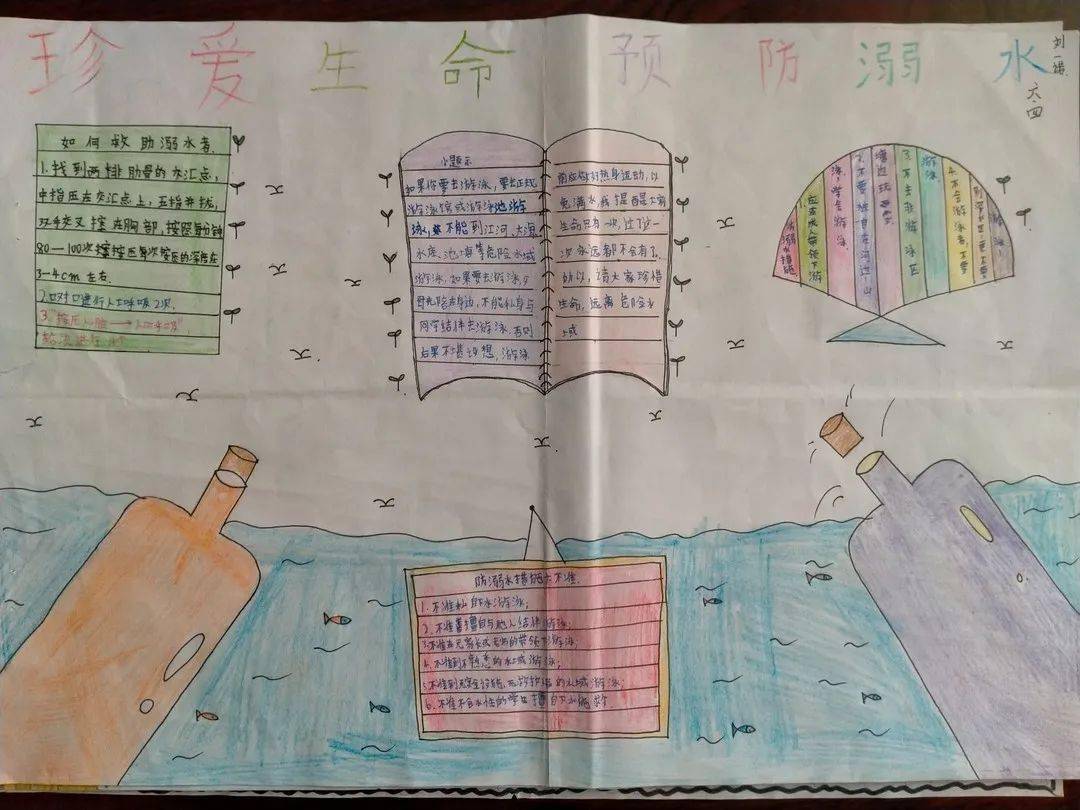 珍爱生命 预防溺水
刘一诺
六.四
如何救助溺水者
1.找到两排肋骨的交汇点,
中指压在交汇点上,五指并拢,
双手交叉撑在胸部,按照每分钟
80—100次按压每次按压的深度在
3-4cm左右.
2.口对口进行人工呼吸2次.
3."按压心脏→人工呼吸"
轮流进行
小题示
如果你要去游泳,要去正规
游泳馆或游泳池游
泳,不能到江河、大海
水库、池塘等危险水域
游泳.如果要去游泳,
母先陪在身边,不能私自与
同学结伴去游泳.否则
后果不堪设想,游泳
前应做好热身运动,以
免满水,我提醒大家
生命只有一次,过了这一
次永远都不会有了,
所以,请大家珍惜
生命,远离危险水
域
防溺水措施
1.应在成人带领下游
泳,学会游泳.
2.不要独自在河边、山
塘边玩
3.不去非游泳区
游泳
4.不会游泳者,不要
防溺水措施六不准.
1.不准私自下水游泳;
2.不准擅自与他人结伴游泳;
3.不准在无家长或老师的带领下游泳;
4.不准到不熟悉的水域游泳;
5.不准到无安全设施、无救护人员的水域游泳;
6.不准不会水性的学生擅自下水施救